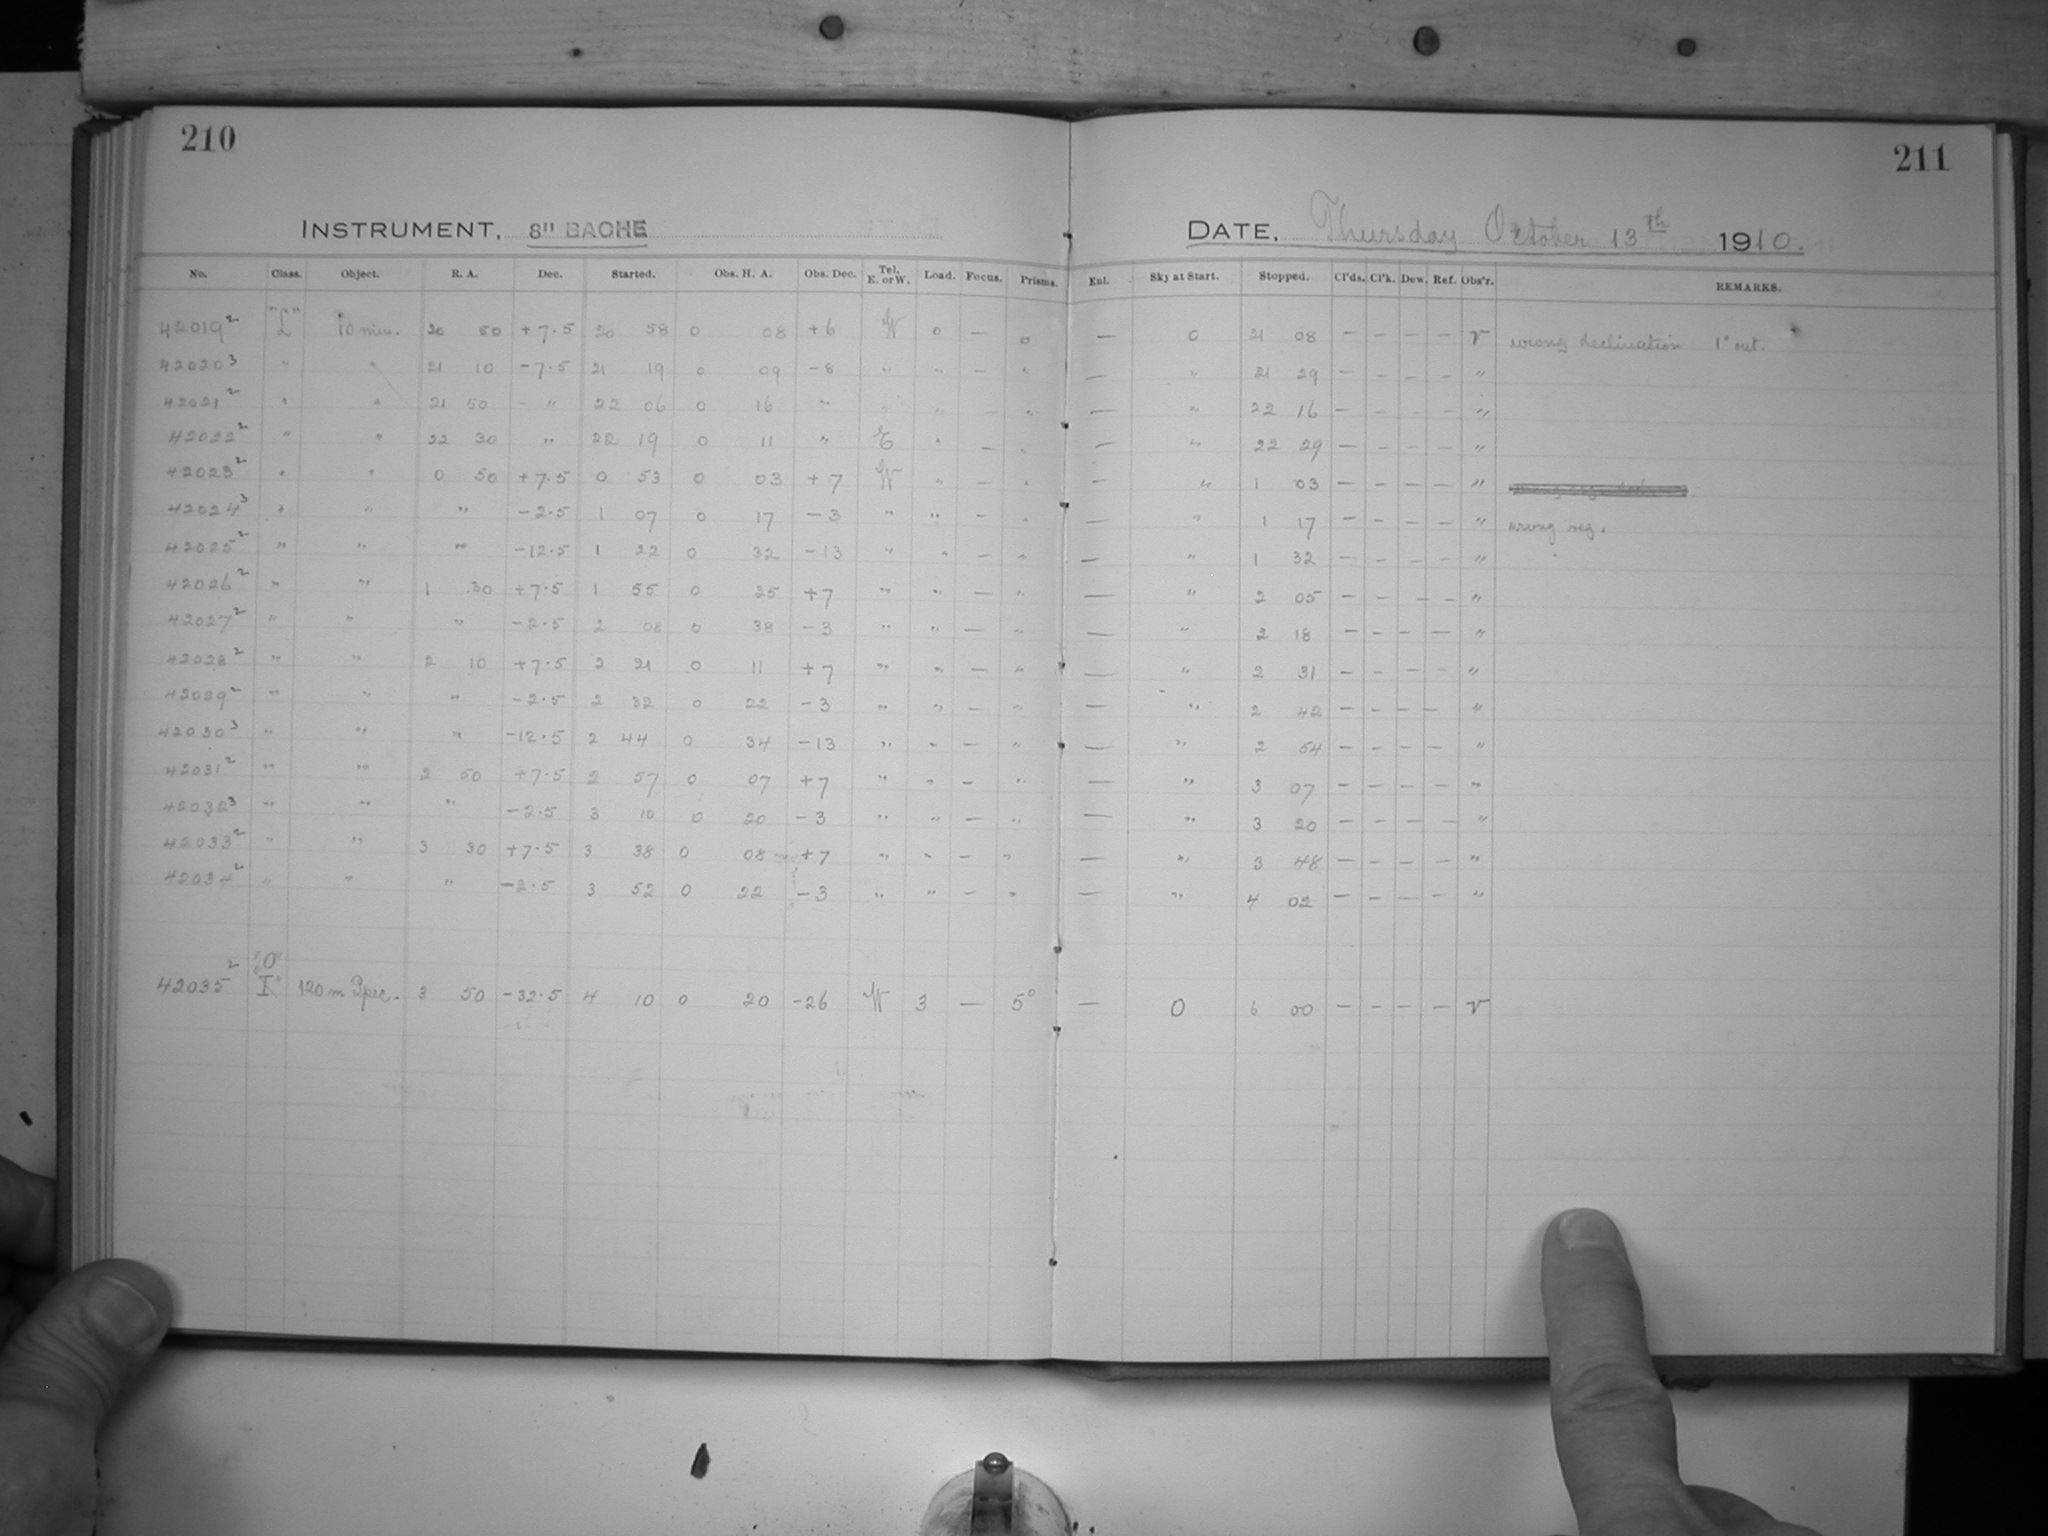 210
211
INSTRUMENT, 8" BACHE
DATE, Thursday October 13th 1910.
No. Class. Object. R. A. Dec. Started. Obs. H. A. Obs. Dec. Tel. E. or W. Load. Focus. Prisms. Enl. Sky at Start. Stopped. Cl'ds. Cl'k. Dew. Ref. Obs'r. REMARKS.
42019² "L" 10 min. 20 50 +7.5 20 58 0 08 +6 W 0 — 0 — 0 21 08 — — — — V wrong declination 1° out.
42020³ " " 21 10 -7.5 21 19 0 09 -8 " " — " — " 21 29 — — — — "
42021² " " 21 50 - " 22 06 0 16 " " " — " — " 22 16 — — — — "
42022² " " 22 30 " 22 19 0 11 " E " — " — " 22 29 — — — — "
42023² " " 0 50 +7.5 0 53 0 03 +7 W " — " — " 1 03 — — — — "
42024³ " " " -2.5 1 07 0 17 -3 " " — " — " 1 17 — — — — " wrong reg.
42025² " " " -12.5 1 22 0 32 -13 " " — " — " 1 32 — — — — "
42026² " " 1 30 +7.5 1 55 0 25 +7 " " — " — " 2 05 — — — — "
42027² " " " -2.5 2 08 0 38 -3 " " — " — " 2 18 — — — — "
42028² " " 2 10 +7.5 2 21 0 11 +7 " " — " — " 2 31 — — — — "
42029² " " " -2.5 2 32 0 22 -3 " " — " — " 2 42 — — — — "
42030³ " " " -12.5 2 44 0 34 -13 " " — " — " 2 54 — — — — "
42031² " " 2 50 +7.5 2 57 0 07 +7 " " — " — " 3 07 — — — — "
42032³ " " " -2.5 3 10 0 20 -3 " " — " — " 3 20 — — — — "
42033² " " 3 30 +7.5 3 38 0 08 +7 " " — " — " 3 48 — — — — "
42034² " " " -2.5 3 52 0 22 -3 " " — " — " 4 02 — — — — "
"O"
42035² "I" 120 m Spec. 3 50 -32.5 4 10 0 20 -26 W 3 — 5° — 0 6 00 — — — — V